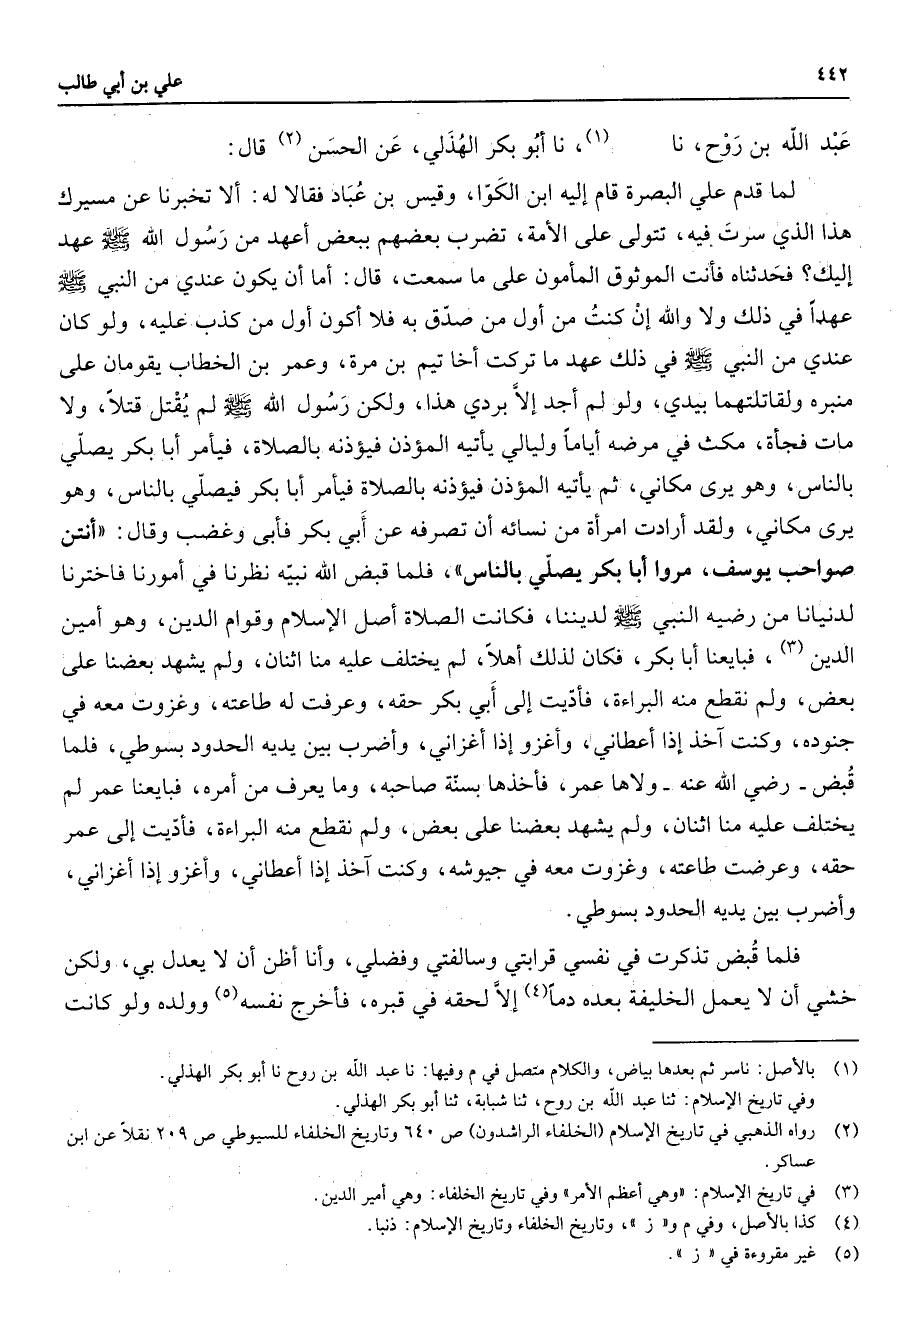 ٤٤٢ علي بن أبي طالب
عَبْد اللّه بن رَوْح، نا (١)، نا أَبُو بكر الهُذَلي، عَن الحسَن (٢) قال:
لما قدم علي البصرة قام إليه ابن الكَوّا، وقيس بن عُبَاد فقالا له: ألا تخبرنا عن مسيرك
هذا الذي سرتَ فيه، تتولى على الأمة، تضرب بعضهم ببعض أعهد من رَسُول الله ﷺ عهد
إليك؟ فحَدثناه فأنت الموثوق المأمون على ما سمعت، قال: أما أن يكون عندي من النبي ﷺ
عهداً في ذلك ولا والله إنْ كنتُ من أول من صدّق به فلا أكون أول من كذب عليه، ولو كان
عندي من النبي ﷺ في ذلك عهد ما تركت أخا تيم بن مرة، وعمر بن الخطاب يقومان على
منبره ولقاتلتهما بيدي، ولو لم أجد إلاَّ بردي هذا، ولكن رَسُول الله ﷺ لم يُقْتل قتلاً، ولا
مات فجأة، مكث في مرضه أياماً وليالي يأتيه المؤذن فيؤذنه بالصلاة، فيأمر أبا بكر يصلّي
بالناس، وهو يرى مكاني، ثم يأتيه المؤذن فيؤذنه بالصلاة فيأمر أبا بكر فيصلّي بالناس، وهو
يرى مكاني، ولقد أرادت امرأة من نسائه أن تصرفه عن أَبي بكر فأبى وغضب وقال: «أنتن
صواحب يوسف، مروا أبا بكر يصلّي بالناس»، فلما قبض الله نبيّه نظرنا في أمورنا فاخترنا
لدنيانا من رضيه النبي ﷺ لديننا، فكانت الصلاة أصل الإسلام وقوام الدين، وهو أمين
الدين (٣)، فبايعنا أبا بكر، فكان لذلك أهلاً، لم يختلف عليه منا اثنان، ولم يشهد بعضنا على
بعض، ولم نقطع منه البراءة، فأدّيت إلى أَبي بكر حقه، وعرفت له طاعته، وغزوت معه في
جنوده، وكنت آخذ إذا أعطاني، وأغزو إذا أغزاني، وأضرب بين يديه الحدود بسوطي، فلما
قُبض - رضي الله عنه - ولاها عمر، فأخذها بسنّة صاحبه، وما يعرف من أمره، فبايعنا عمر لم
يختلف عليه منا اثنان، ولم يشهد بعضنا على بعض، ولم نقطع منه البراءة، فأدّيت إلى عمر
حقه، وعرضت طاعته، وغزوت معه في جيوشه، وكنت آخذ إذا أعطاني، وأغزو إذا أغزاني،
وأضرب بين يديه الحدود بسوطي.
فلما قُبض تذكرت في نفسي قرابتي وسالفتي وفضلي، وأنا أظن أن لا يعدل بي، ولكن
خشي أن لا يعمل الخليفة بعده دماً(٤) إلاَّ لحقه في قبره، فأخرج نفسه(٥) وولده ولو كانت
(١) بالأصل: ناسر ثم بعدها بياض، والكلام متصل في م وفيها: نا عبد اللّه بن روح نا أبو بكر الهذلي.
وفي تاريخ الإسلام: ثنا عبد اللّه بن روح، ثنا شبابة، ثنا أبو بكر الهذلي.
(٢) رواه الذهبي في تاريخ الإسلام (الخلفاء الراشدون) ص ٦٤٠ وتاريخ الخلفاء للسيوطي ص ٢٠٩ نقلاً عن ابن
عساكر.
(٣) في تاريخ الإسلام: «وهي أعظم الأمر» وفي تاريخ الخلفاء: وهي أمير الدين.
(٤) كذا بالأصل، وفي م و« ز »، وتاريخ الخلفاء وتاريخ الإسلام: ذنبا.
(٥) غير مقروءة في « ز ».